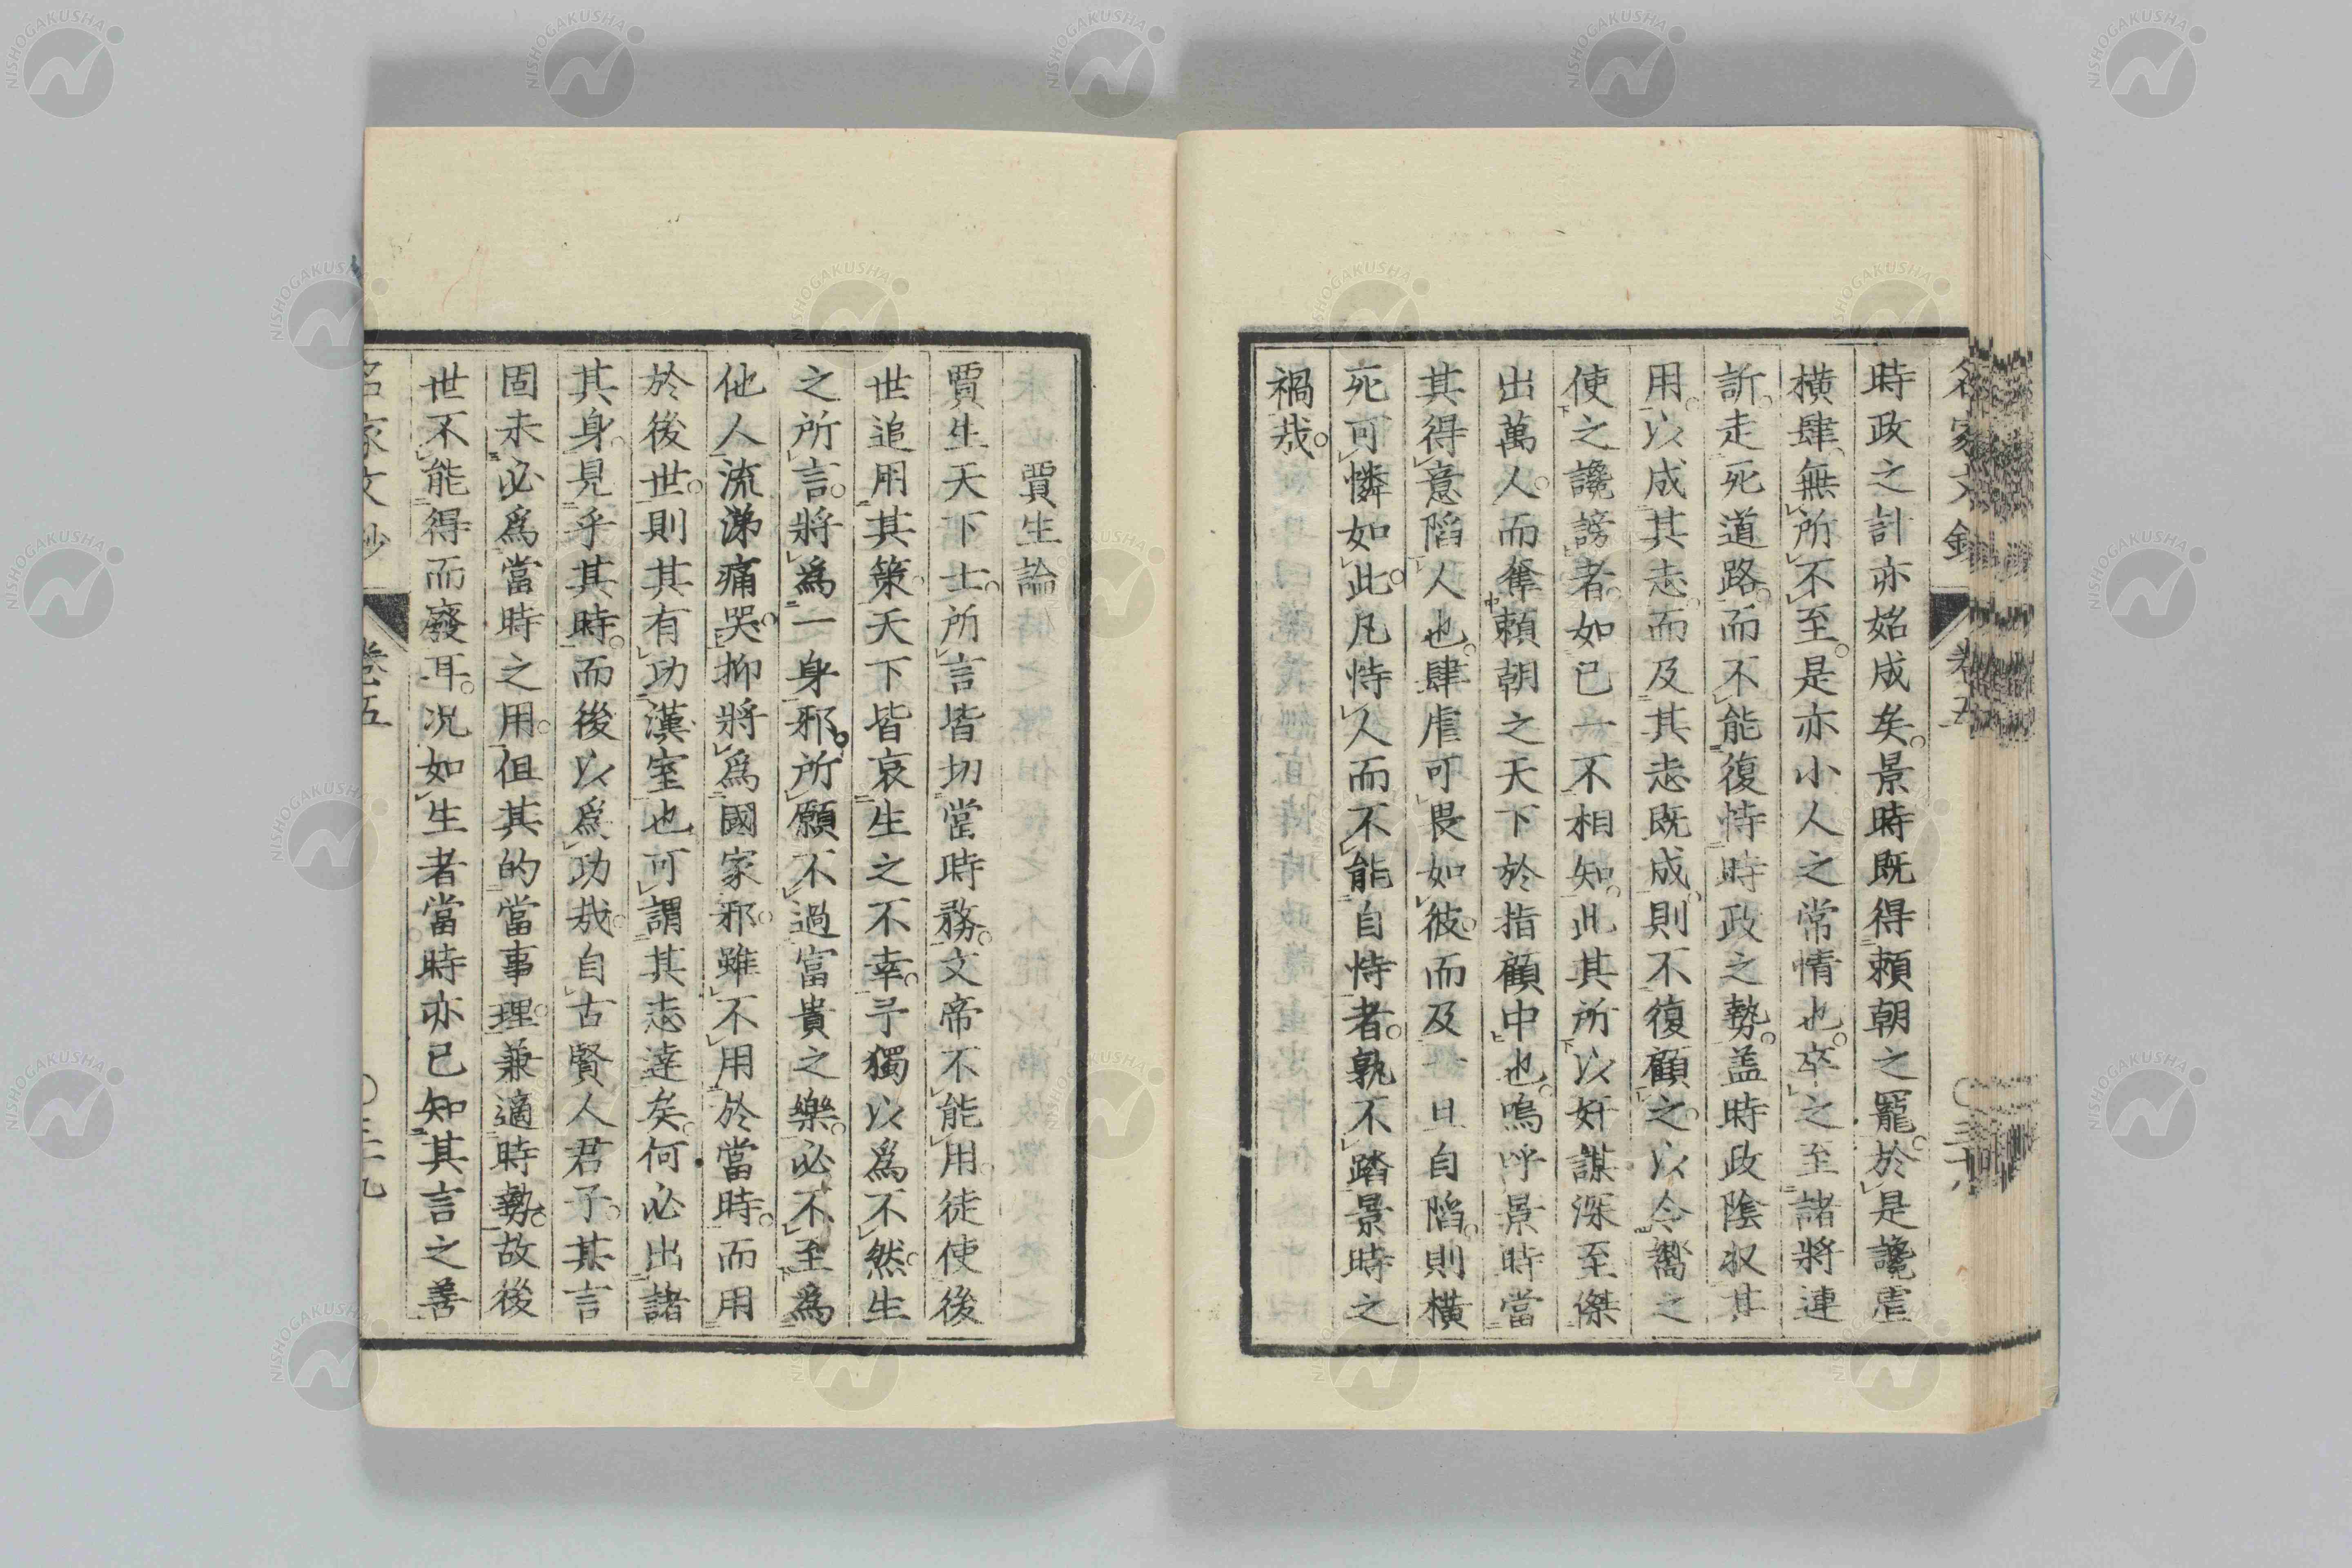 時政之計亦始成矣。景時既得頼朝之寵。於是讒虐
横肆。無所不至。是亦小人之常情也。卒之至諸將連
訴。走死道路。而不能復恃時政之勢。盖時政陰収其
用。以成其志。而及其志既成。則不復顧之。以令嚮之
使之讒謗者。如已一不相知。此其所以奸謀深至傑
出萬人。而奪頼朝之天下於指顧中也。嗚呼景時當
其得意陷人也。肆虐可畏如彼。而及一旦自陷。則横
死可憐如此。凡恃人而不能自恃者。孰不踏景時之
禍哉。
賈生論
賈生天下士。所言皆切當時務。文帝不能用。徒使後
世追用其策。天下皆哀生之不幸。予獨以爲不然。生
之所言。將爲一身邪。所願不過富貴之樂。必不至爲
他人流涕痛哭。抑將爲國家邪。雖不用於當時。而用
於後世。則其有功漢室也。可謂其志達矣。何必出諸
其身。見乎其時。而後以爲功哉。自古賢人君子。其言
固未必爲當時之用。但其的當事理。兼適時勢。故後
世不能得而廢耳。况如生者當時亦已知其言之善
卷五
NISHOGAKUSHA